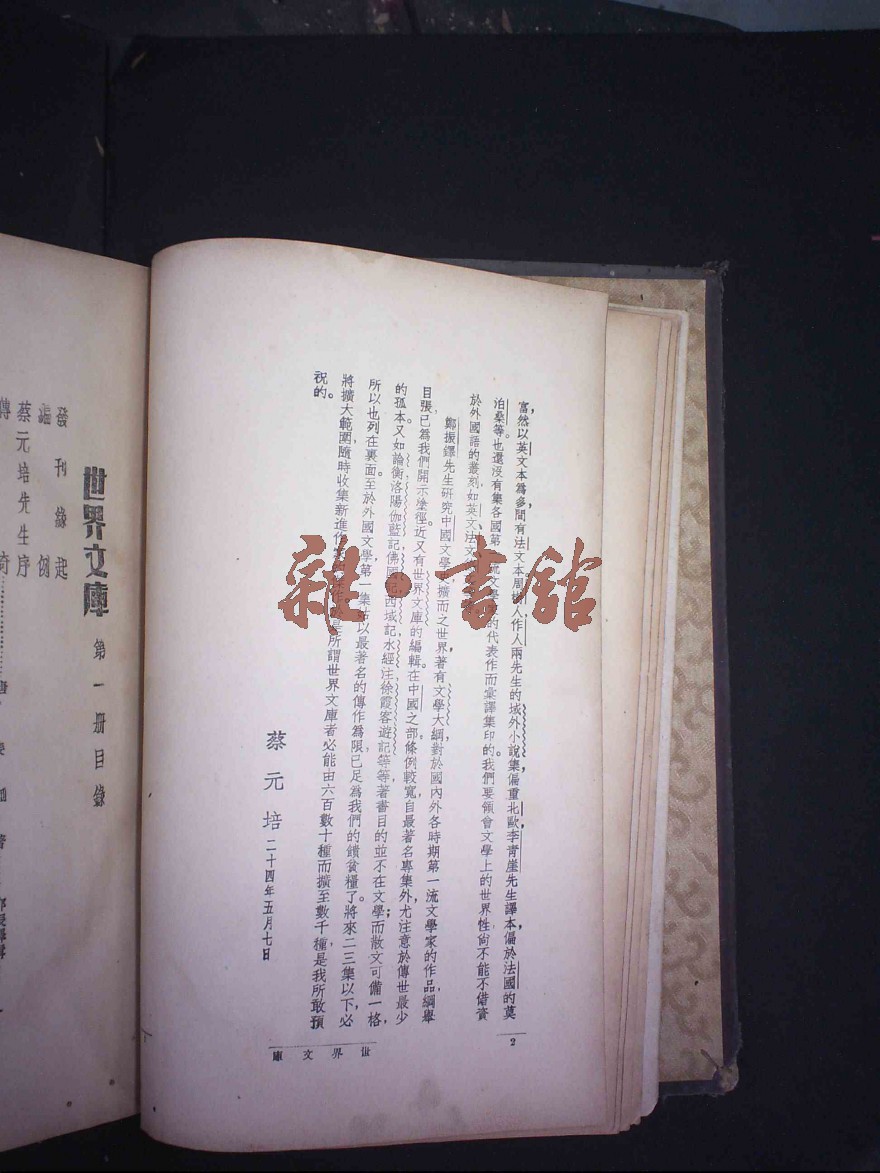 富，然以英文本爲多間有法文本周樹人作人兩先生的域外小說集，偏重北歐，李青崖先生譯本偏於法國的莫
泊桑等。也還沒有集各國第一流文學家的代表作而彙譯集印的。我們要領會文學上的世界性尙不能不借資
於外國語的叢刻如英文、法文
鄭振鐸先生研究中國文學，擴而之世界著有文學大綱，對於國內外各時期第一流文學家的作品，綱舉
目張已爲我們開示塗徑。近又有世界文庫的編輯。在中國之部，條例較寬自最著名專集外，尤注意於傳世最少
的孤本。又如論衡，洛陽伽藍記，佛國記，西域記，水經注，徐霞客遊記等等著書目的並不在文學；而散文可備一格，
所以也列在裏面。至於外國文學第一集姑以最著名的傳作爲限，已足爲我們的饋貧糧了。將來二三集以下，必
將擴大範圍隨時收集新進作家的作於是所謂世界文庫者必能由六百數十種而擴至數千種，是我所敢預
祝的。
蔡元培 二十四年五月七日
2
世界文庫
雜·書館
世界文庫 第一冊目錄
發刊緣起
編例
蔡元培先生序